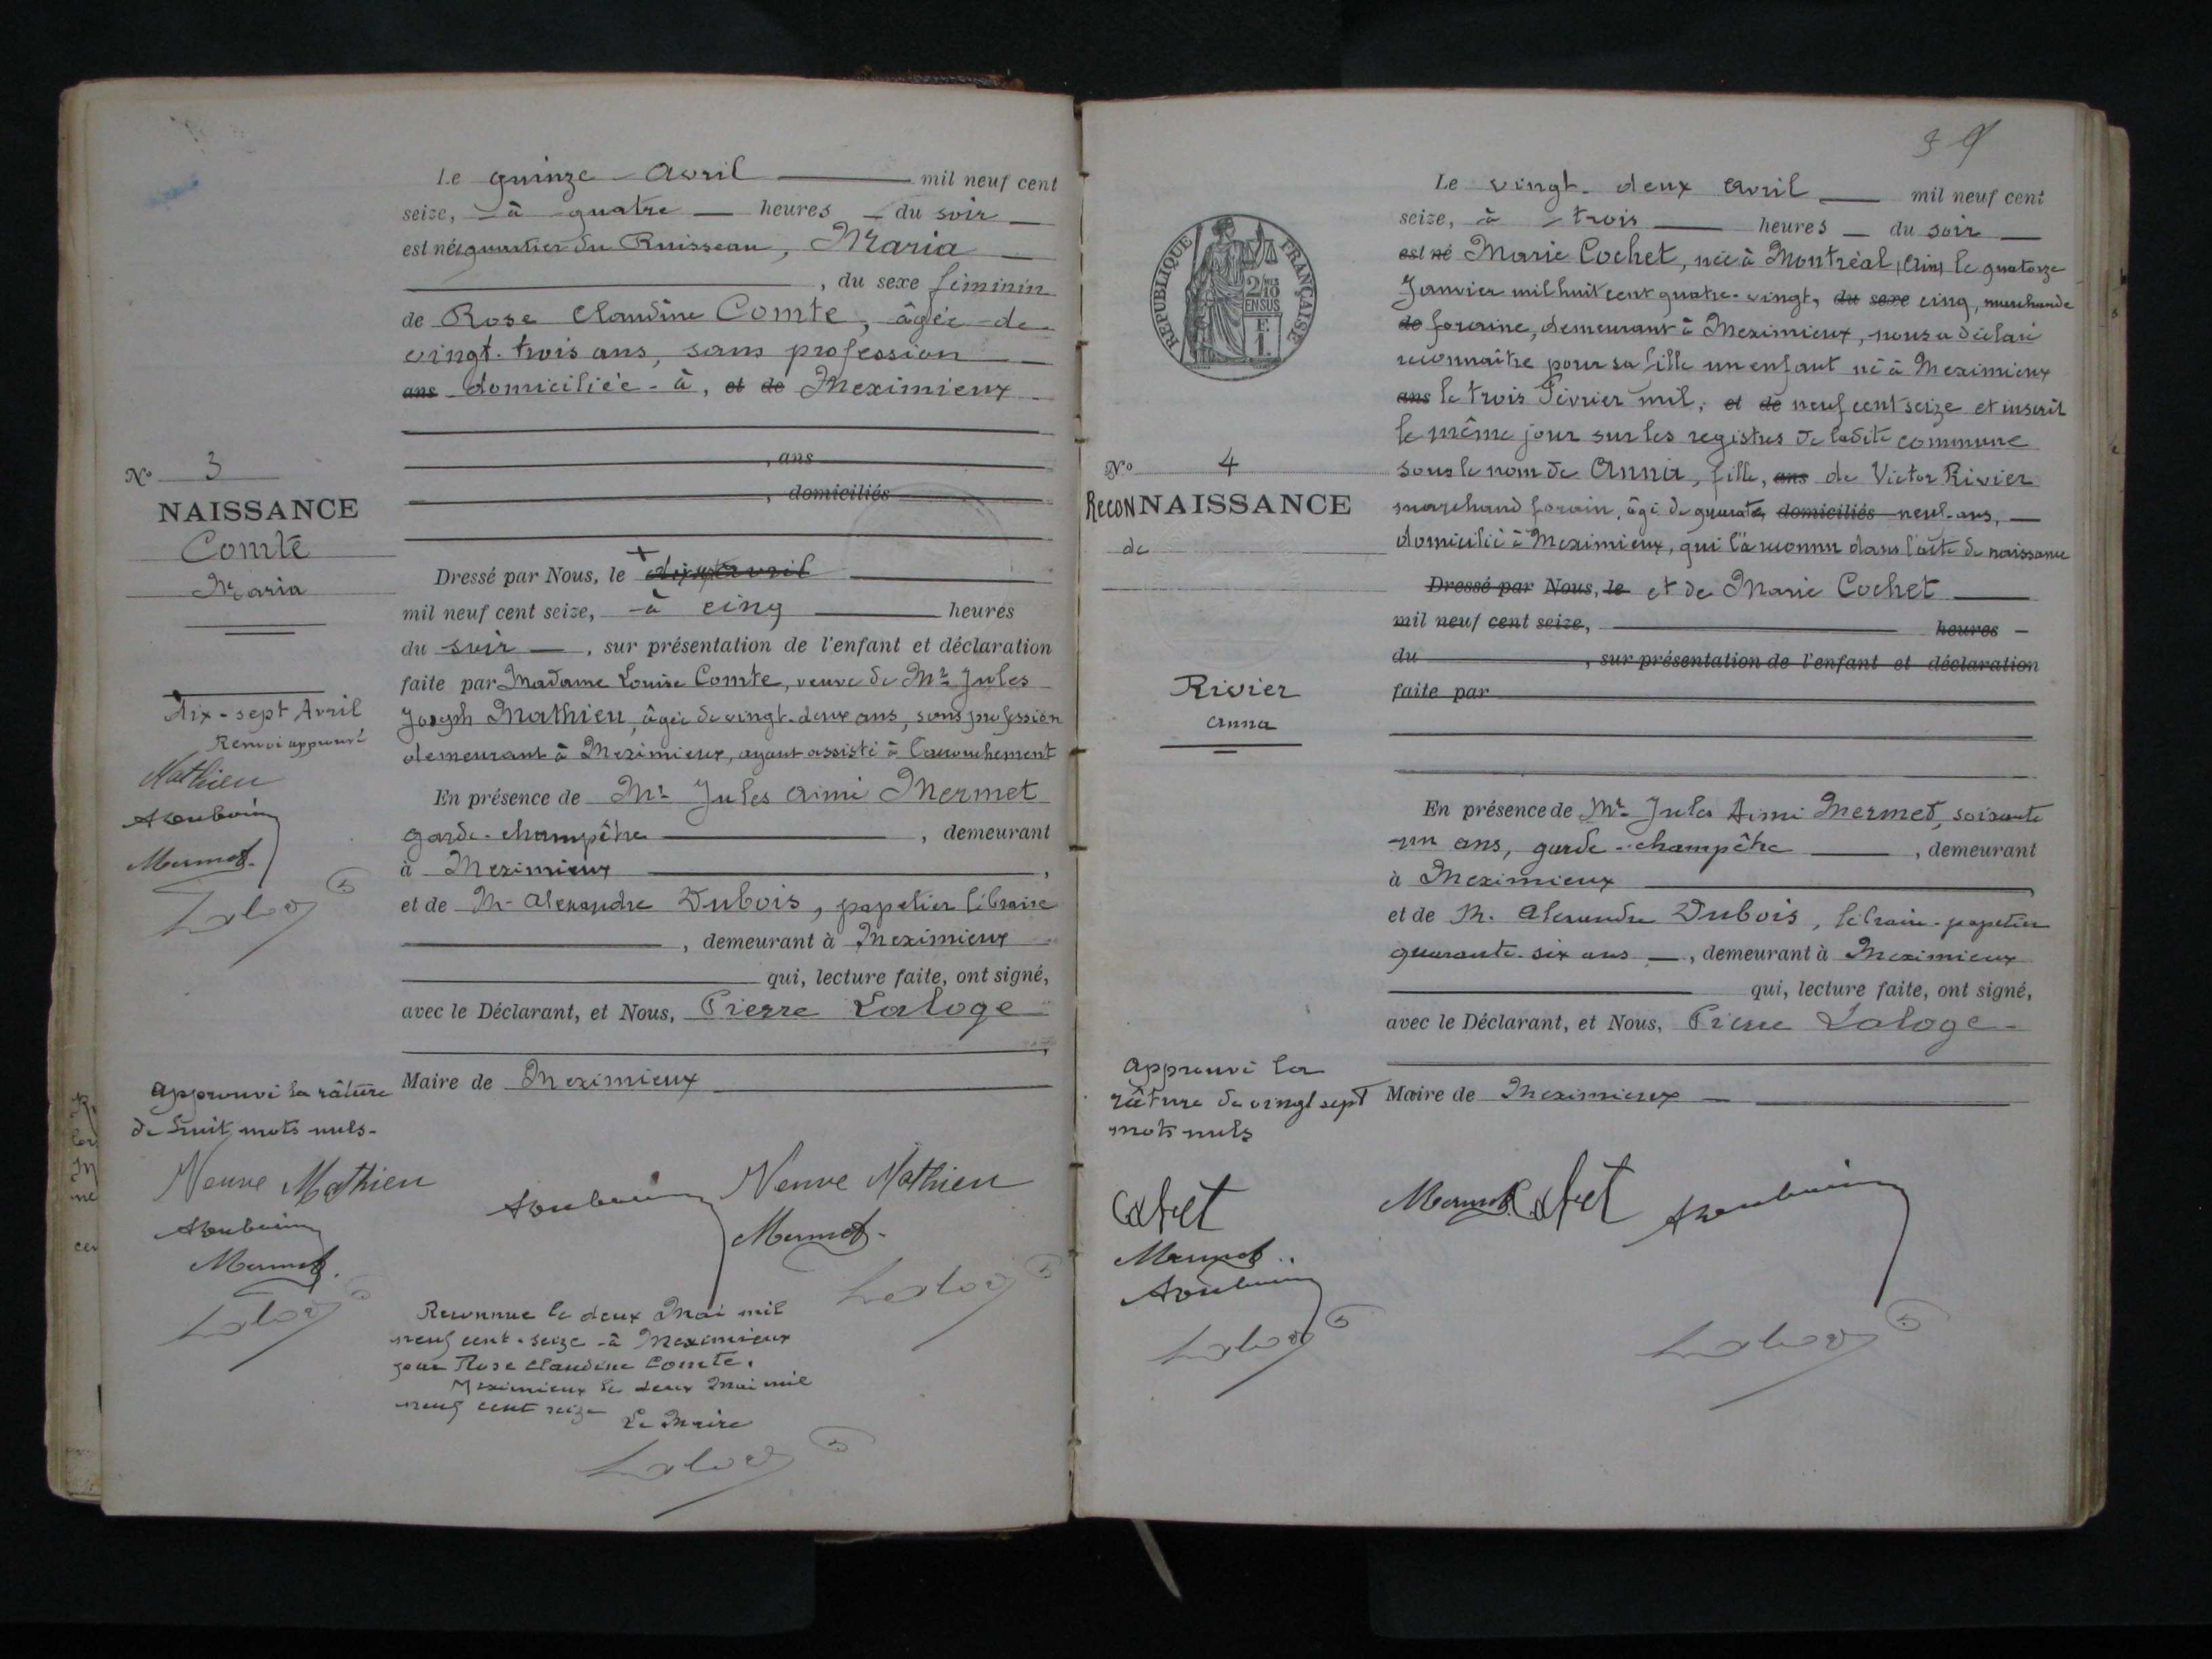 Le quinze Avril mil neuf cent
seize, à quatre heures du soir
est née quartier du Ruisseau, Maria
, du sexe féminin
de Rose Claudine Comte, âgée de
vingt-trois ans, sans profession
ans domiciliée à, et de Meximieux
, ans
, domiciliés
No 3
NAISSANCE
Comte
Maria
Dressé par Nous, le + dix-sept avril
mil neuf cent seize, à cinq heures
du soir, sur présentation de l'enfant et déclaration
faite par Madame Louise Comte, veuve de Mr Jules
Joseph Mathieu, âgée de vingt-deux ans, sans profession
demeurant à Meximieux, ayant assisté à l'accouchement
En présence de Mr Jules Aimé Mermet
garde-champêtre, demeurant
à Meximieux,
et de M. Alexandre Dubois, papetier libraire
, demeurant à Meximieux
qui, lecture faite, ont signé,
avec le Déclarant, et Nous, Pierre Laloge
Maire de Meximieux
Dix-sept Avril
Renvoi approuvé
Mathieu
Mermet
Approuvé la râture
de huit mots nuls
Veuve Mathieu
Mermet
Veuve Mathieu
Mermet
Reconnue le deux Mai mil
neuf cent-seize à Meximieux
par Rose Claudine Comte.
Meximieux le deux Mai mil
neuf cent seize
Le Maire
39
Le vingt-deux avril mil neuf cent
seize, à trois heures du soir
est né Marie Cochet, née à Montréal (Ain) le quatorze
Janvier mil huit cent quatre-vingt, du sexe cinq, marchande
de foraine, demeurant à Meximieux, nous a déclaré
reconnaître pour sa fille un enfant né à Meximieux
ans le trois Février mil, et de neuf cent seize et inscrit
le même jour sur les registres de ladite commune
sous le nom de Anna, fille, ans de Victor Rivier
marchand forain, âgé de quarante, domiciliés neuf ans,
domicilié à Meximieux, qui l'a reconnu dans l'acte de naissance
Dressé par Nous, le et de Marie Cochet
mil neuf cent seize, heures
du, sur présentation de l'enfant et déclaration
faite par
RÉPUBLIQUE FRANÇAISE
2/10 EN SUS
No 4
RECONNAISSANCE
de
Rivier
Anna
En présence de Mr Jules Aimé Mermet, soixante
un ans, garde-champêtre, demeurant
à Meximieux
et de M. Alexandre Dubois, libraire-papetier
quarante-six ans, demeurant à Meximieux
qui, lecture faite, ont signé,
avec le Déclarant, et Nous, Pierre Laloge
Maire de Meximieux
Approuvé la
râture de vingt sept
mots nuls
Mermet
Mermet